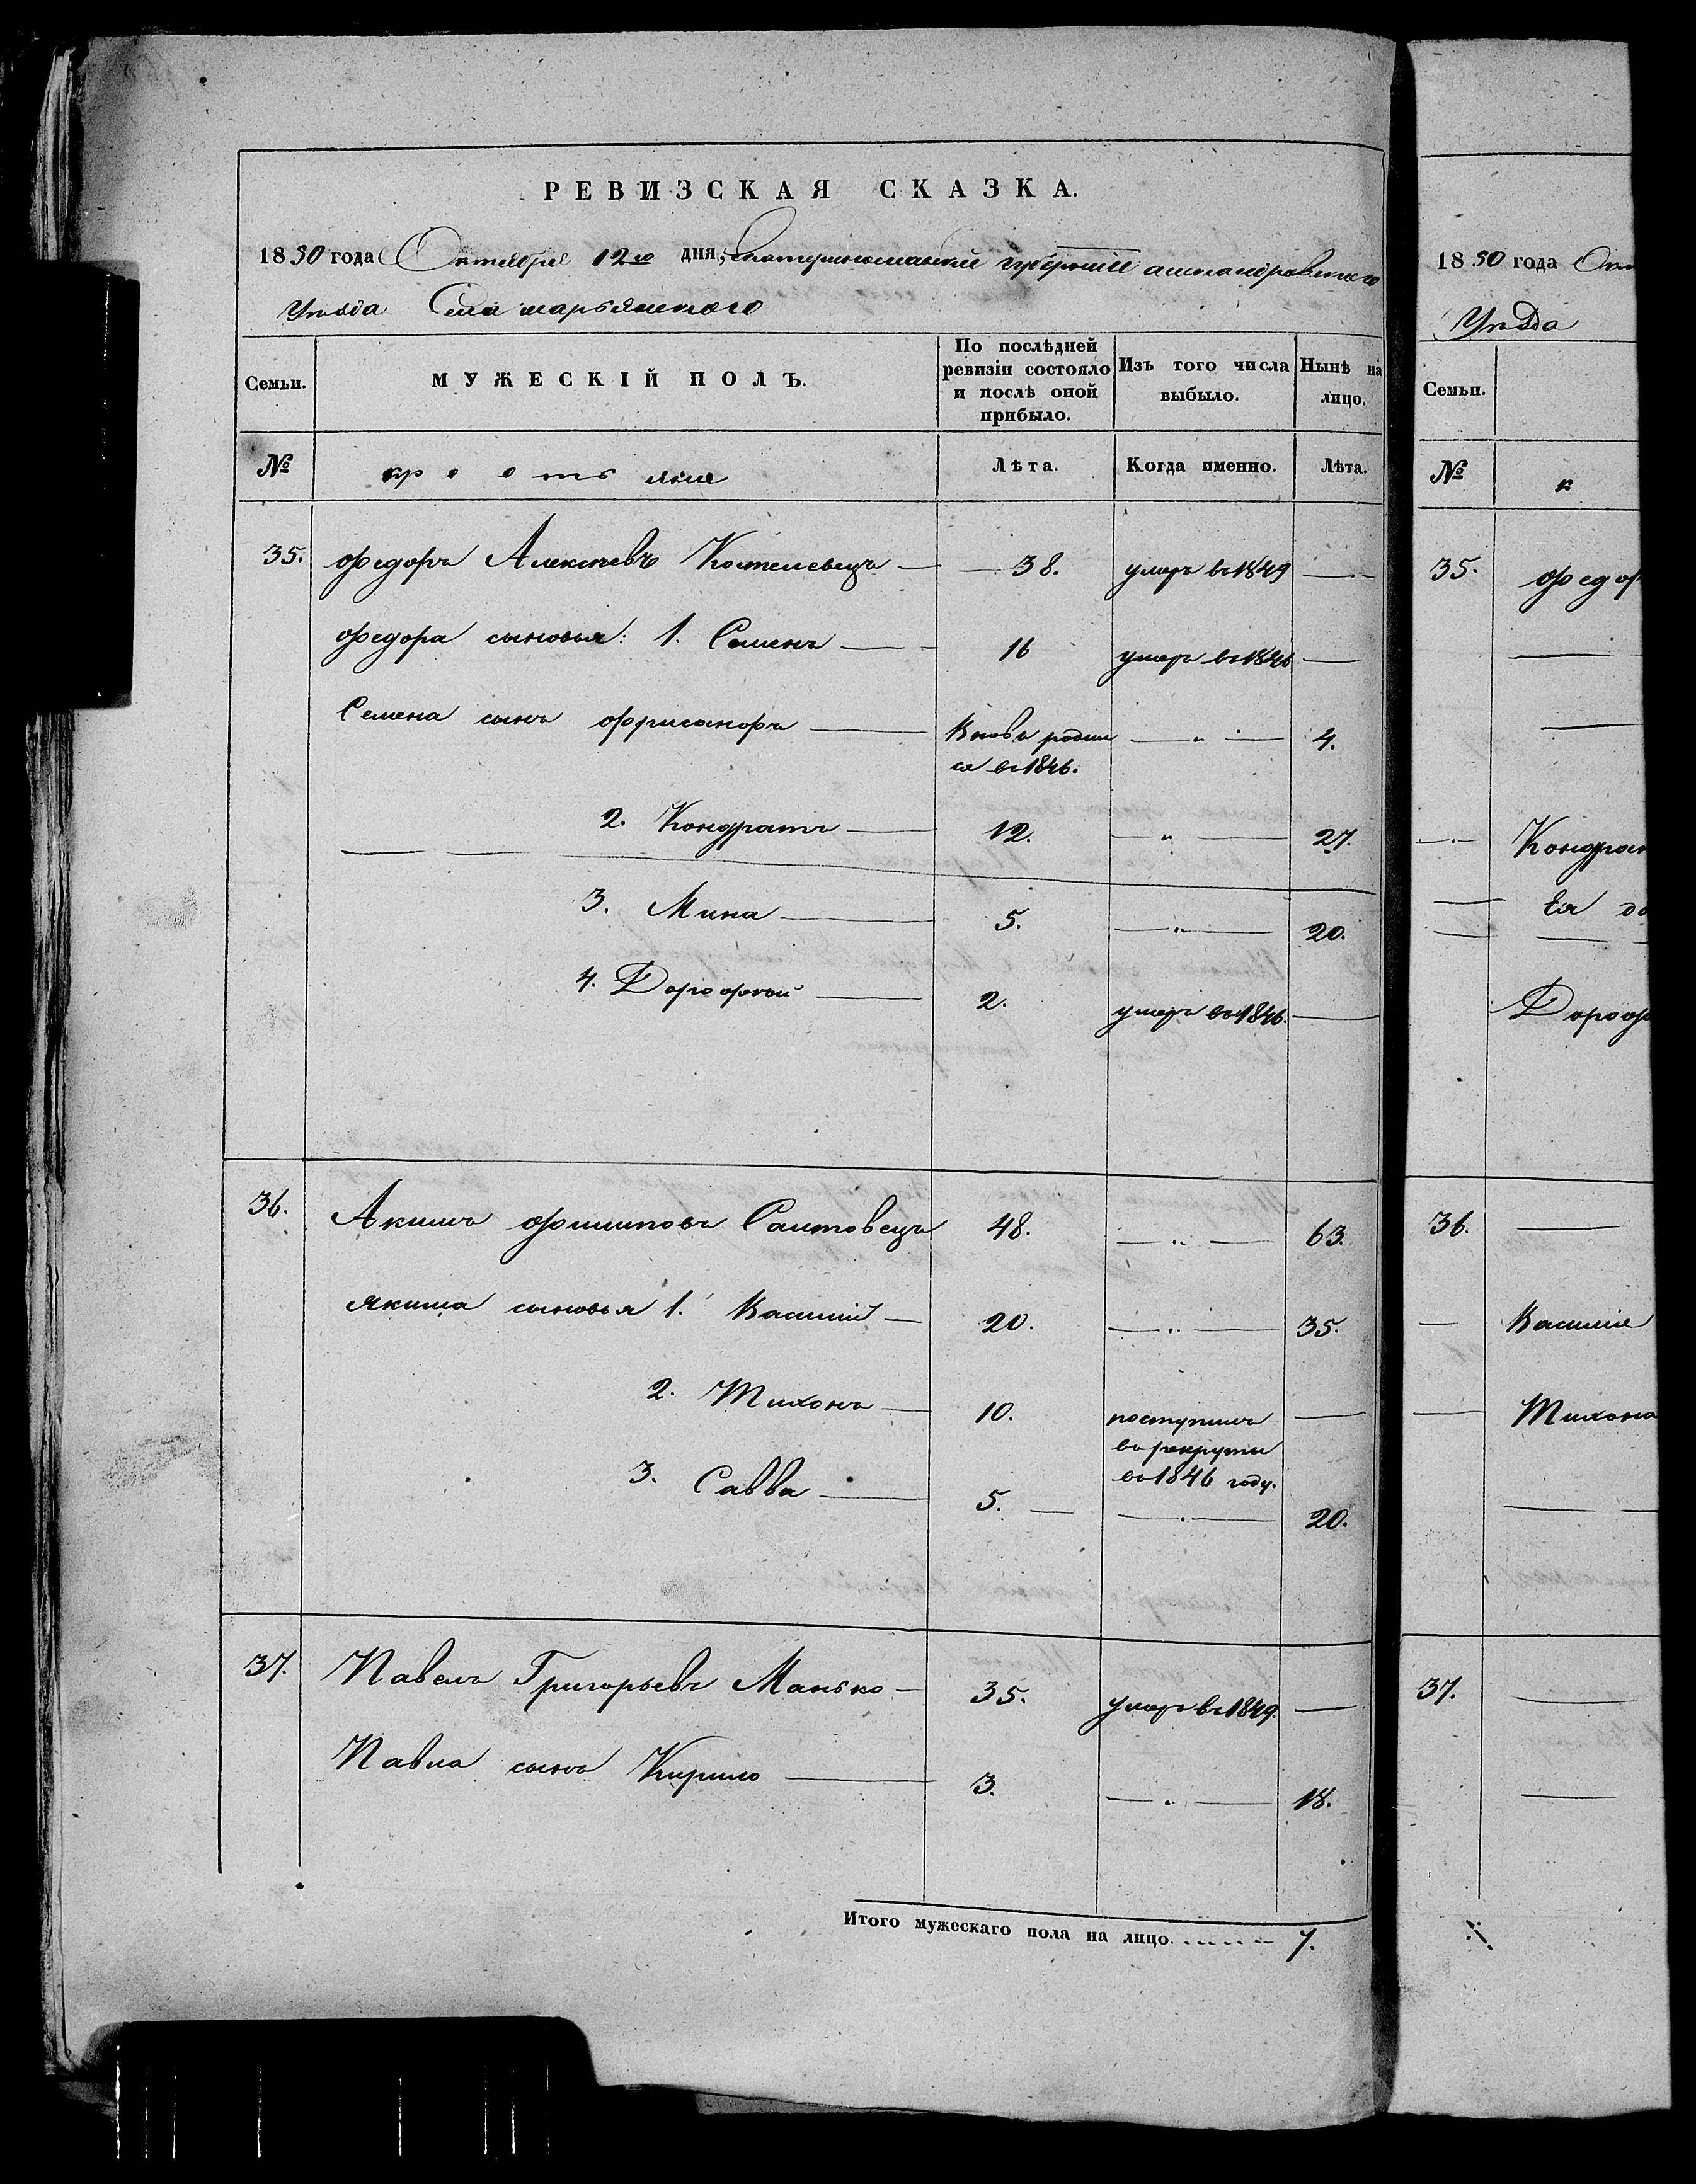 РЕВИЗСКАЯ СКАЗКА.
1850 года Октября 12го дня, Екатеринославской губернии александровского
Уѣзда Села марьянского
Семьи. МУЖЕСКІЙ ПОЛЪ. По послѣдней ревизіи состояло и послѣ оной прибыло. Изъ того числа выбыло. Нынѣ на лицо.
№ крестьяне Лѣта. Когда именно. Лѣта.
35. Федоръ Алексѣевъ Котелевецъ — 38. умеръ въ 1849 —
Федора сыновья: 1. Семенъ — 16 умеръ въ 1846 —
Семена сынъ — Вновь родил — " — 4.
ся въ 1846.
2. Кондратъ — 12. — " — 27.
3. Мина — 5. — " — 20.
4. Дорофей — 2. умеръ въ 1846. —
36. Акимъ Филиповъ Салтовецъ 48. — " — 63.
Якима сыновья 1. Василий — 20. — " — 35.
2. Тихонъ — 10. поступилъ —
въ рекруты
въ 1846 году.
3. Савва — 5. — — " — 20.
37. Павелъ Григорьевъ Манько — 35. умеръ въ 1849. —
Павла сынъ Кирило — 3. — " — 18.
Итого мужескаго пола на лицо. 7.
1850 года Окт
Уѣзда
Семьи.
№ к
35. Федор
Кондрат
Ея до
Дороф
36. —
Василие
Тихона
37. —